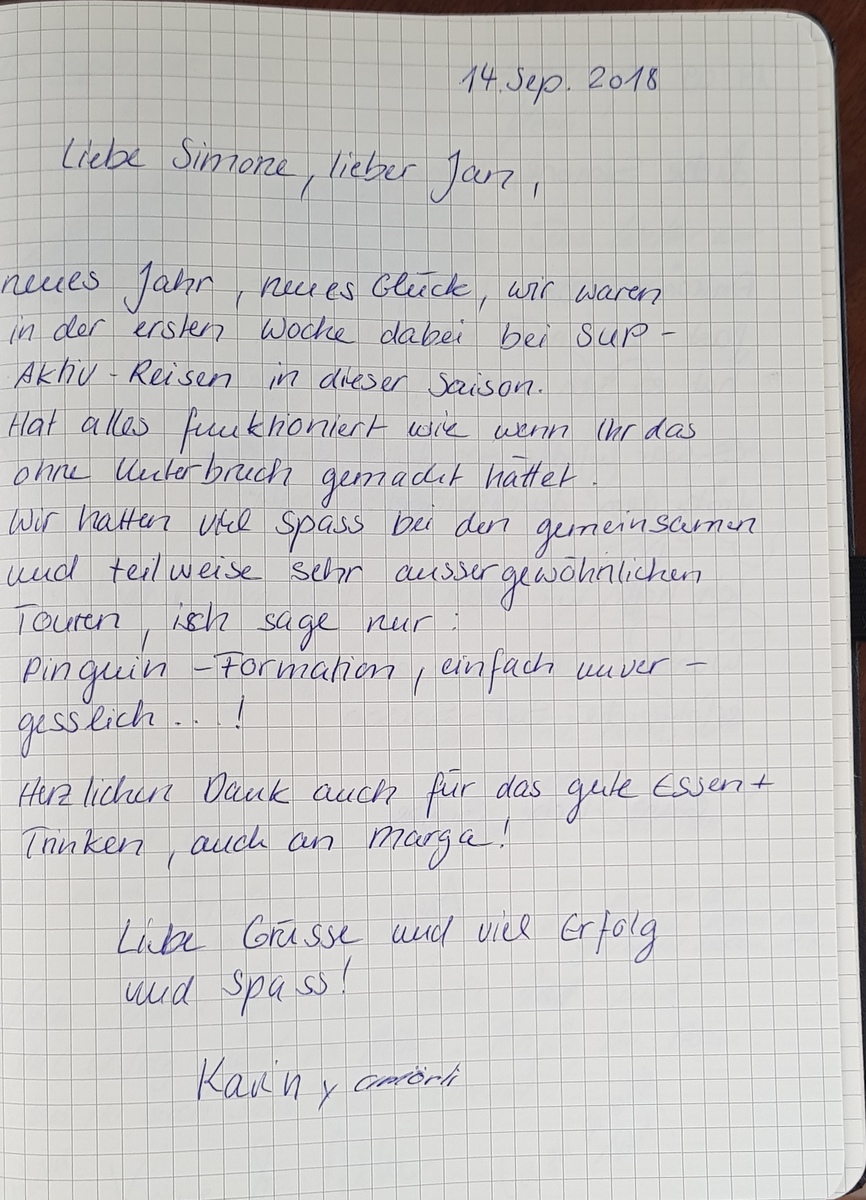 14. Sep. 2018
Liebe Simone, lieber Jan,
neues Jahr, neues Glück, wir waren
in der ersten Woche dabei bei SUP-
Aktiv-Reisen in dieser Saison.
Hat alles funktioniert wie wenn Ihr das
ohne Unterbruch gemacht hättet.
Wir hatten viel Spass bei den gemeinsamen
und teilweise sehr aussergewöhnlichen
Touren, isch sage nur:
Pinguin-Formation, einfach unver-
gesslich...!
Herzlichen Dank auch für das gute Essen +
Trinken, auch an Marga!
Liebe Grüsse und viel Erfolg
und Spass!
Karin y